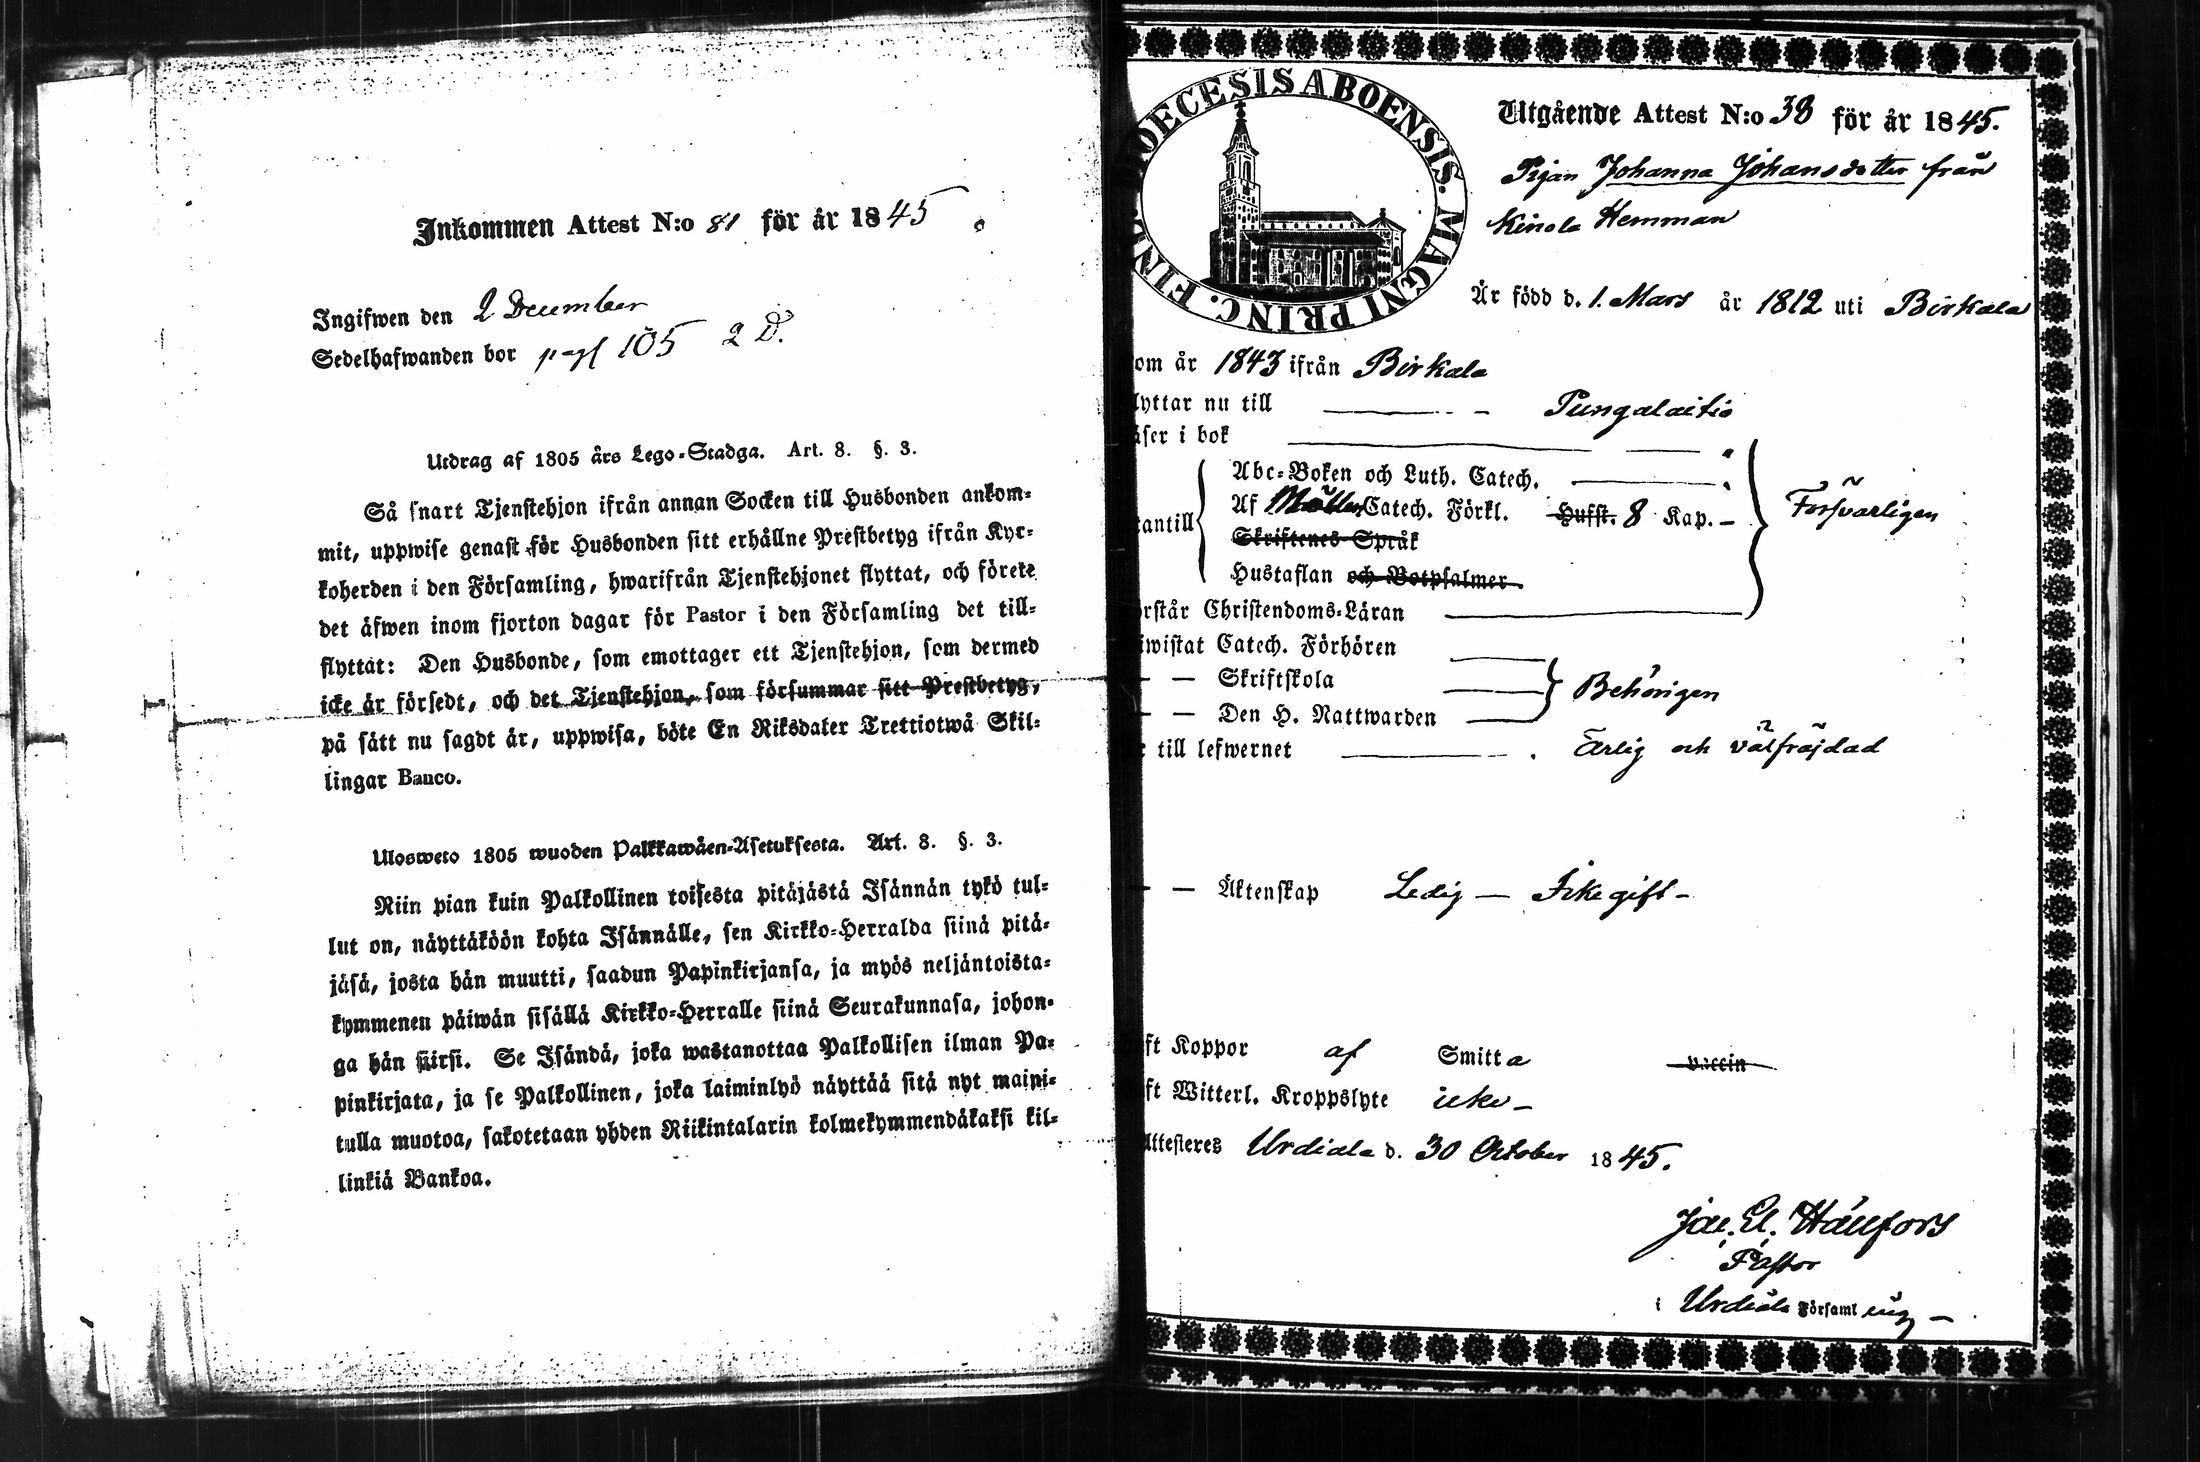 Inkommen Attest N:o 81 för år 1845.
Ingifwen den 2 December
Sedelhafwanden bor pag 105 2 D.
Utdrag af 1805 års Lego-Stadga. Art. 8. §. 3.
Så snart Tjenstehjon ifrån annan Socken till Husbonden ankom-
mit, uppwise genast för Husbonden sitt erhållne Prestbetyg ifrån Kyr-
koherden i den Församling, hwarifrån Tjenstehjonet flyttat, och förete
det äfwen inom fjorton dagar för Pastor i den Församling det till-
flyttat: Den Husbonde, som emottager ett Tjenstehjon, som dermed
icke är försedt, och det Tjenstehjon, som försummar sitt Prestbetyg,
på sätt nu sagdt är, uppwisa, böte En Riksdaler Trettiotwå Skil-
lingar Banco.
Ulosweto 1805 wuoden Palkkawäen-Asetuksesta. Art. 8. §. 3.
Niin pian kuin Palkollinen toisesta pitäjästä Isännän tykö tul-
lut on, näyttäköön kohta Isännälle, sen Kirkko-Herralda siinä pitä-
jäsä, josta hän muutti, saadun Papinkirjansa, ja myös neljäntoista-
kymmenen päiwän sisällä Kirkko-Herralle siinä Seurakunnasa, johon-
ga hän siirsi. Se Isändä, joka wastanottaa Palkollisen ilman Pa-
pinkirjata, ja se Palkollinen, joka laiminlyö näyttää sitä nyt maini-
tulla muotoa, sakotetaan yhden Riikintalarin kolmekymmendäkaksi kil-
linkiä Bankoa.
DIOECESIS ABOENSIS. MAGNI PRINC. FINL.
Utgående Attest N:o 38 för år 1845.
Pigan Johanna Johansdotter från
Kinola Hemman
Är född d. 1. Mars år 1812 uti Birkala
om år 1843 ifrån Birkala
lyttar nu till Pungalaitio
äser i bok
Abc-Boken och Luth. Catech.
Af Möllers Catech. Förkl. Husst. 8 Kap. Försvarligen
tantill
Skriftenes Språk
Hustaflan och Botpsalmer
rstår Christendoms-Läran
iwistat Catech. Förhören
— — Skriftskola Behörigen
— — Den H. Nattwarden
till lefwernet Ärlig och välfräjdad
— — Äktenskap Ledig — Icke gift —
ft Koppor af Smitta vaccin
ft Witterl. Kroppslyte icke —
Attesteres Urdiala d. 30 October 1845.
Jac. El. Hällfors
Pastor
i Urdiala Församling —